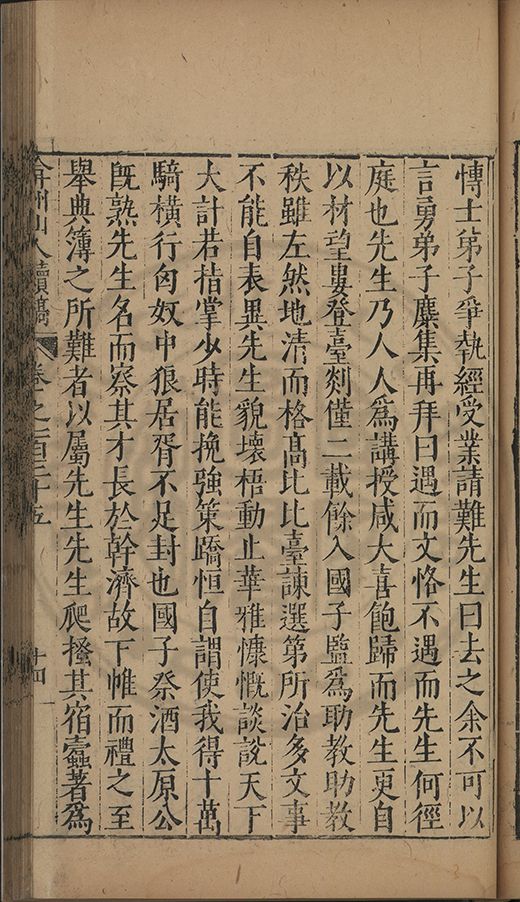 博士弟子爭執經受業請難先生曰去之余不可以
言勇弟子麋集再拜曰遇而文恪不遇而先生何徑
庭也先生乃人人爲講授咸大喜飽歸而先生更自
以材望婁登臺剡僅二載餘入國子監爲助教助教
秩雖左然地清而格高比比臺諫選第所治多文事
不能自表異先生貌壞梧動止華雅慷慨談說天下
大計若桔掌少時能挽強策蹻恒自謂使我得十萬
騎橫行匈奴中狼居胥不足封也國子祭酒太原公
旣熟先生名而察其才長於幹濟故下帷而禮之至
舉典簿之所難者以屬先生先生爬搔其宿蠹著爲
弇州山人續稿 卷之一百三十五 十四